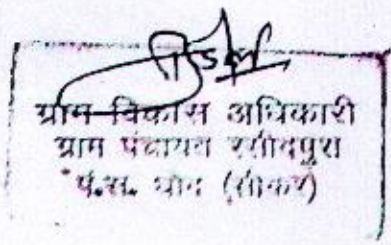 ग्राम विकास अधिकारी
ग्राम पंचायत रसीदपुरा
पं.स. धोद (सीकर)